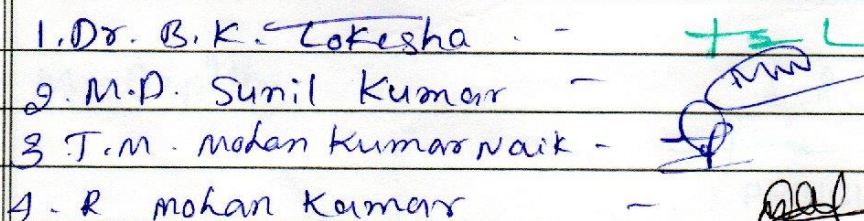 1. Dr. B. K. Lokesha . -
2. M.D. Sunil Kumar -
3 T.M. Mohan Kumar Naik -
4. R Mohan Kumar -